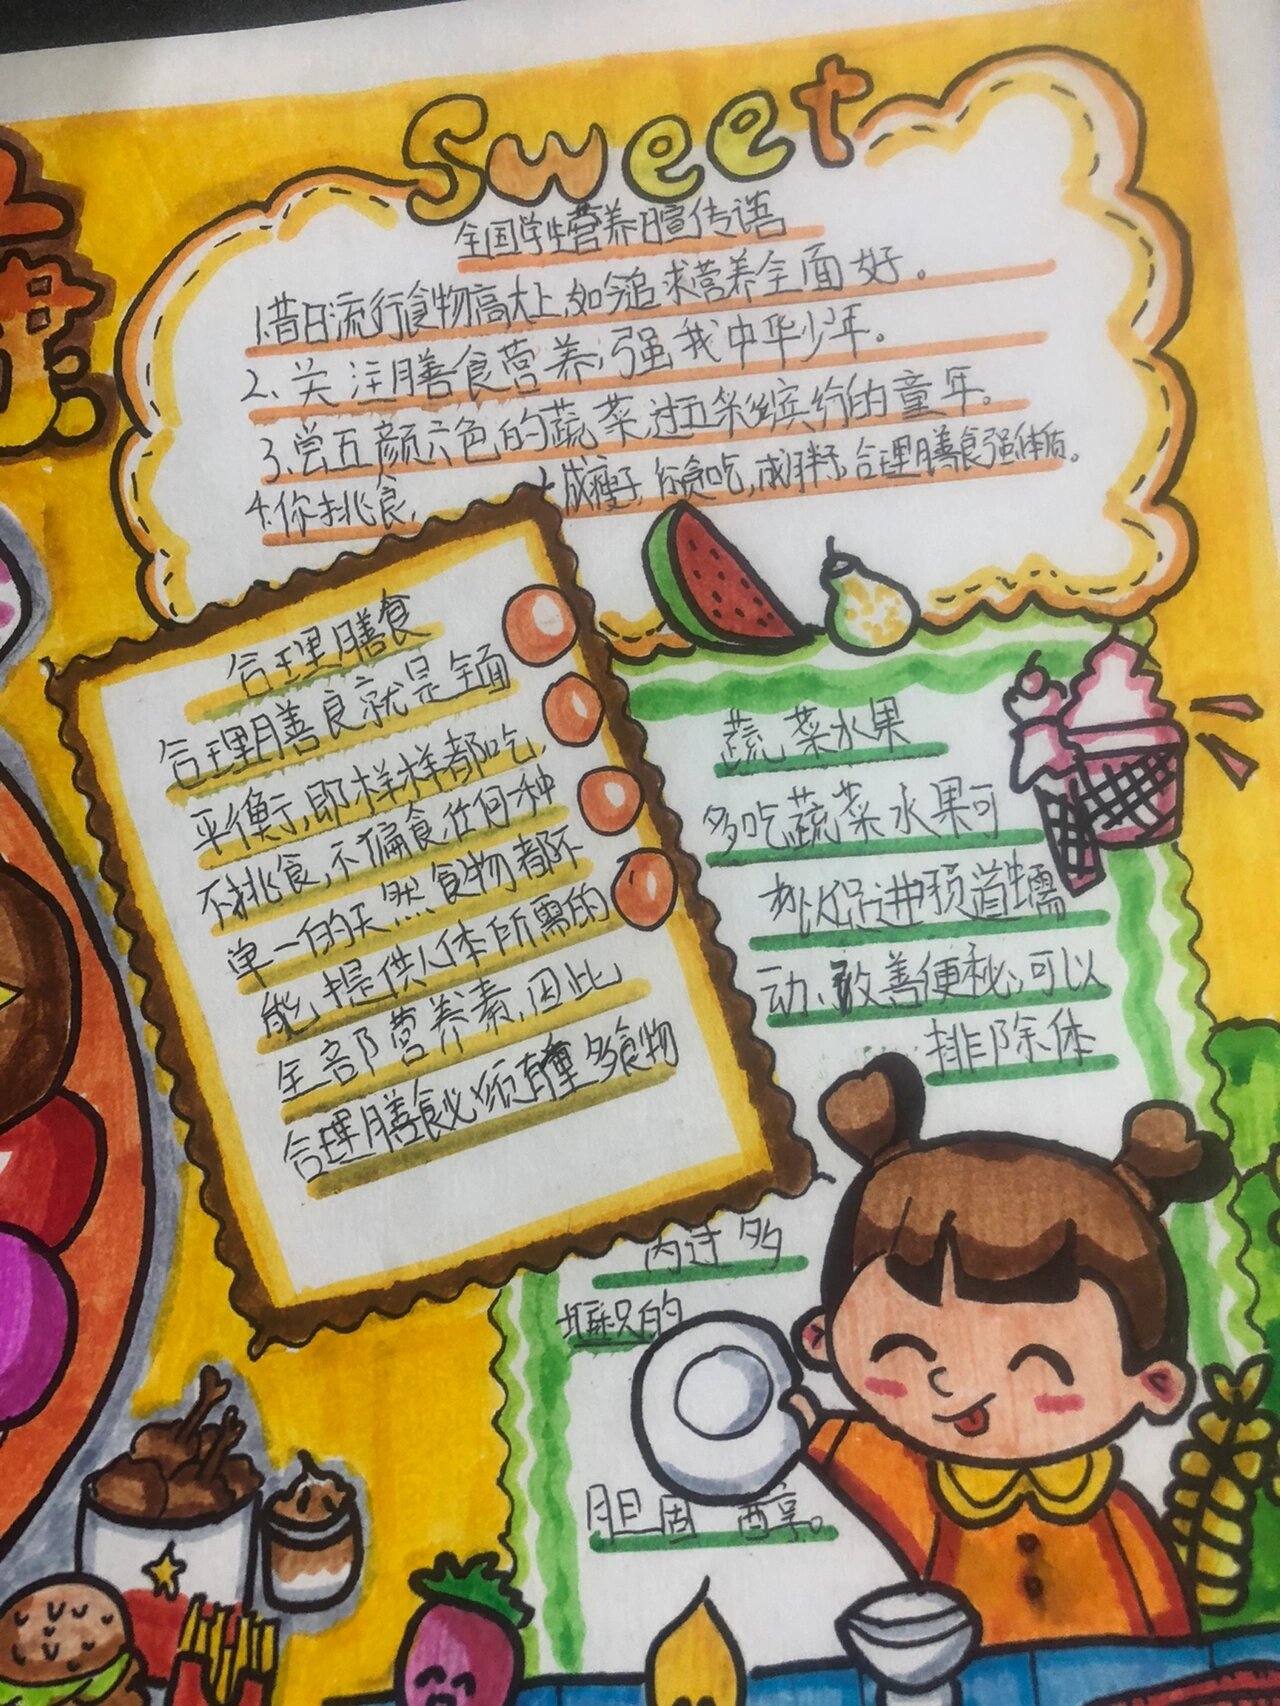 Sweet
全国学生营养日宣传语
1.昔日流行食物高大上,如今追求营养全面好。
2、关注膳食营养,强我中华少年。
3、尝五颜六色的蔬菜,过五彩缤纷的童年。
4.你挑食,成瘦子,你贪吃,成胖子,合理膳食强体质。
合理膳食
合理膳食就是全面
平衡,即样样都吃,
不挑食,不偏食,任何种
单一的天然食物都不
能,提供人体所需的
全部营养素,因此
合理膳食必须有多食物
蔬菜水果
多吃蔬菜水果可
以促进肠道蠕
动、改善便秘,可以
排除体
内过多
堆积的
胆固醇。